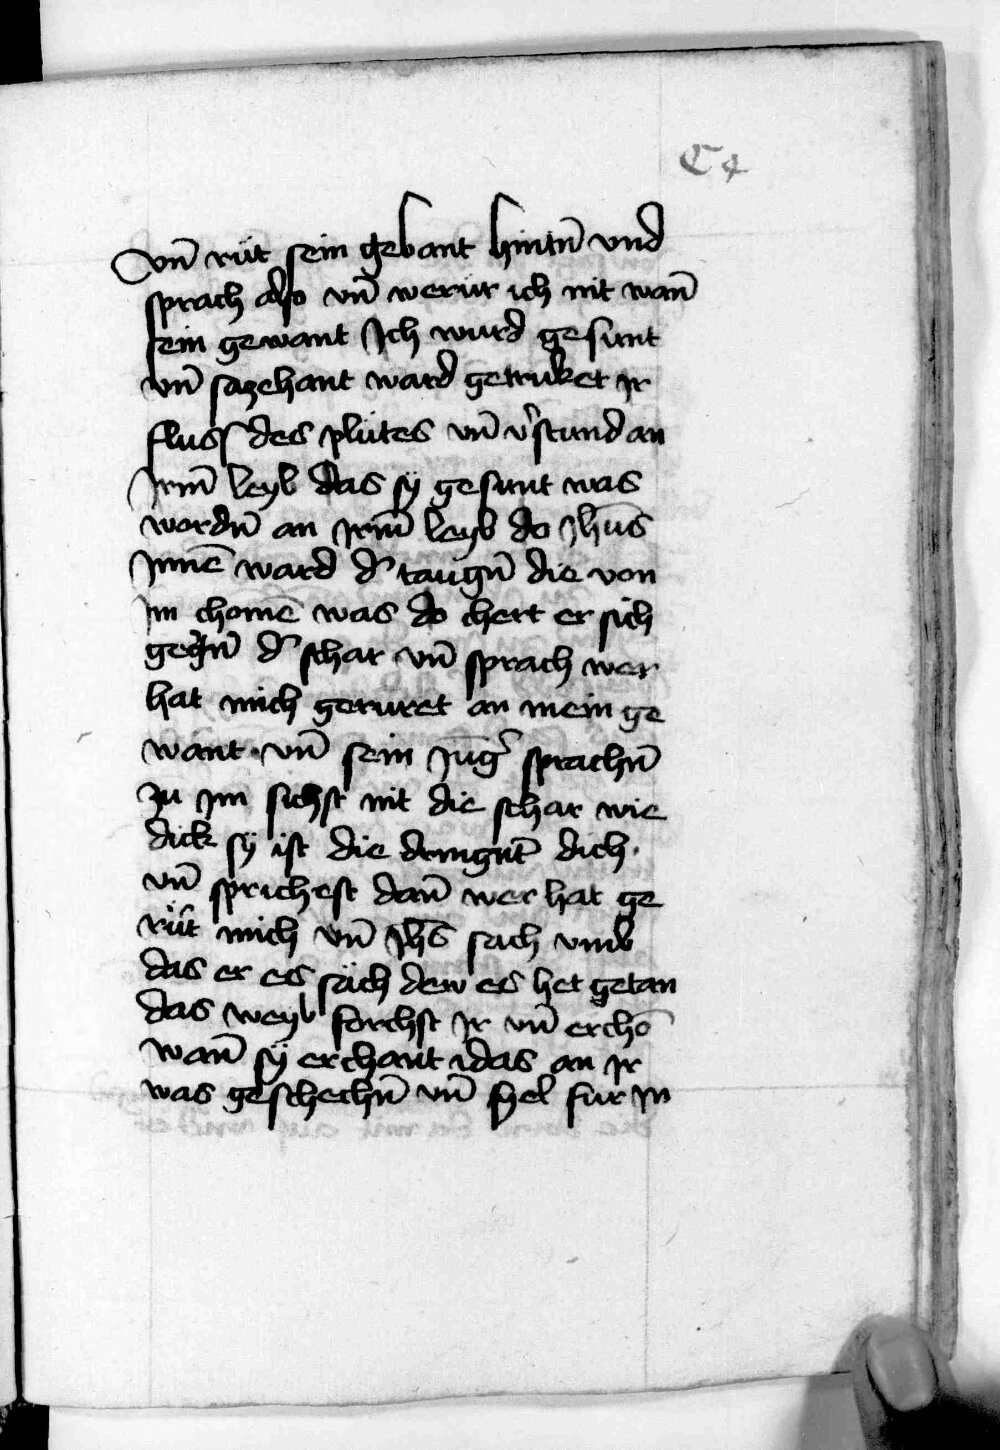 C4
vn̄ rüt sein gebant hintn̄ vnd
sprach also vn̄ werür ich nit wan̄
sein gewant Ich wurd gesunt
vn̄ sazehant ward getruket Ir
fluss des plütes vn̄ v̾stund an
Irm̄ leyb das sÿ gesunt was
wordn̄ an Irm̄ leyb do Jhūs
Innē ward d̾ taugn̄ die von
Im chomē was do chert er sich
gegn̄ d̾ schar vn̄ sprach wer
hat mich geruret an mein ge
want · vn̄ sein Jūg̾ sprachn̄
zu Im sichst nit die schar wie
dick sÿ ist die dringnt̄ dich ·
vn̄ sprichest dan̄ wer hat ge
rüt mich vn̄ Jhs̄ sach vmb
das er es säch dew es het getan
das weyb forchst Ir vn̄ erchō
wan̄ sÿ erchant das an Ir
was geschechn̄ vn̄ vyel fur In